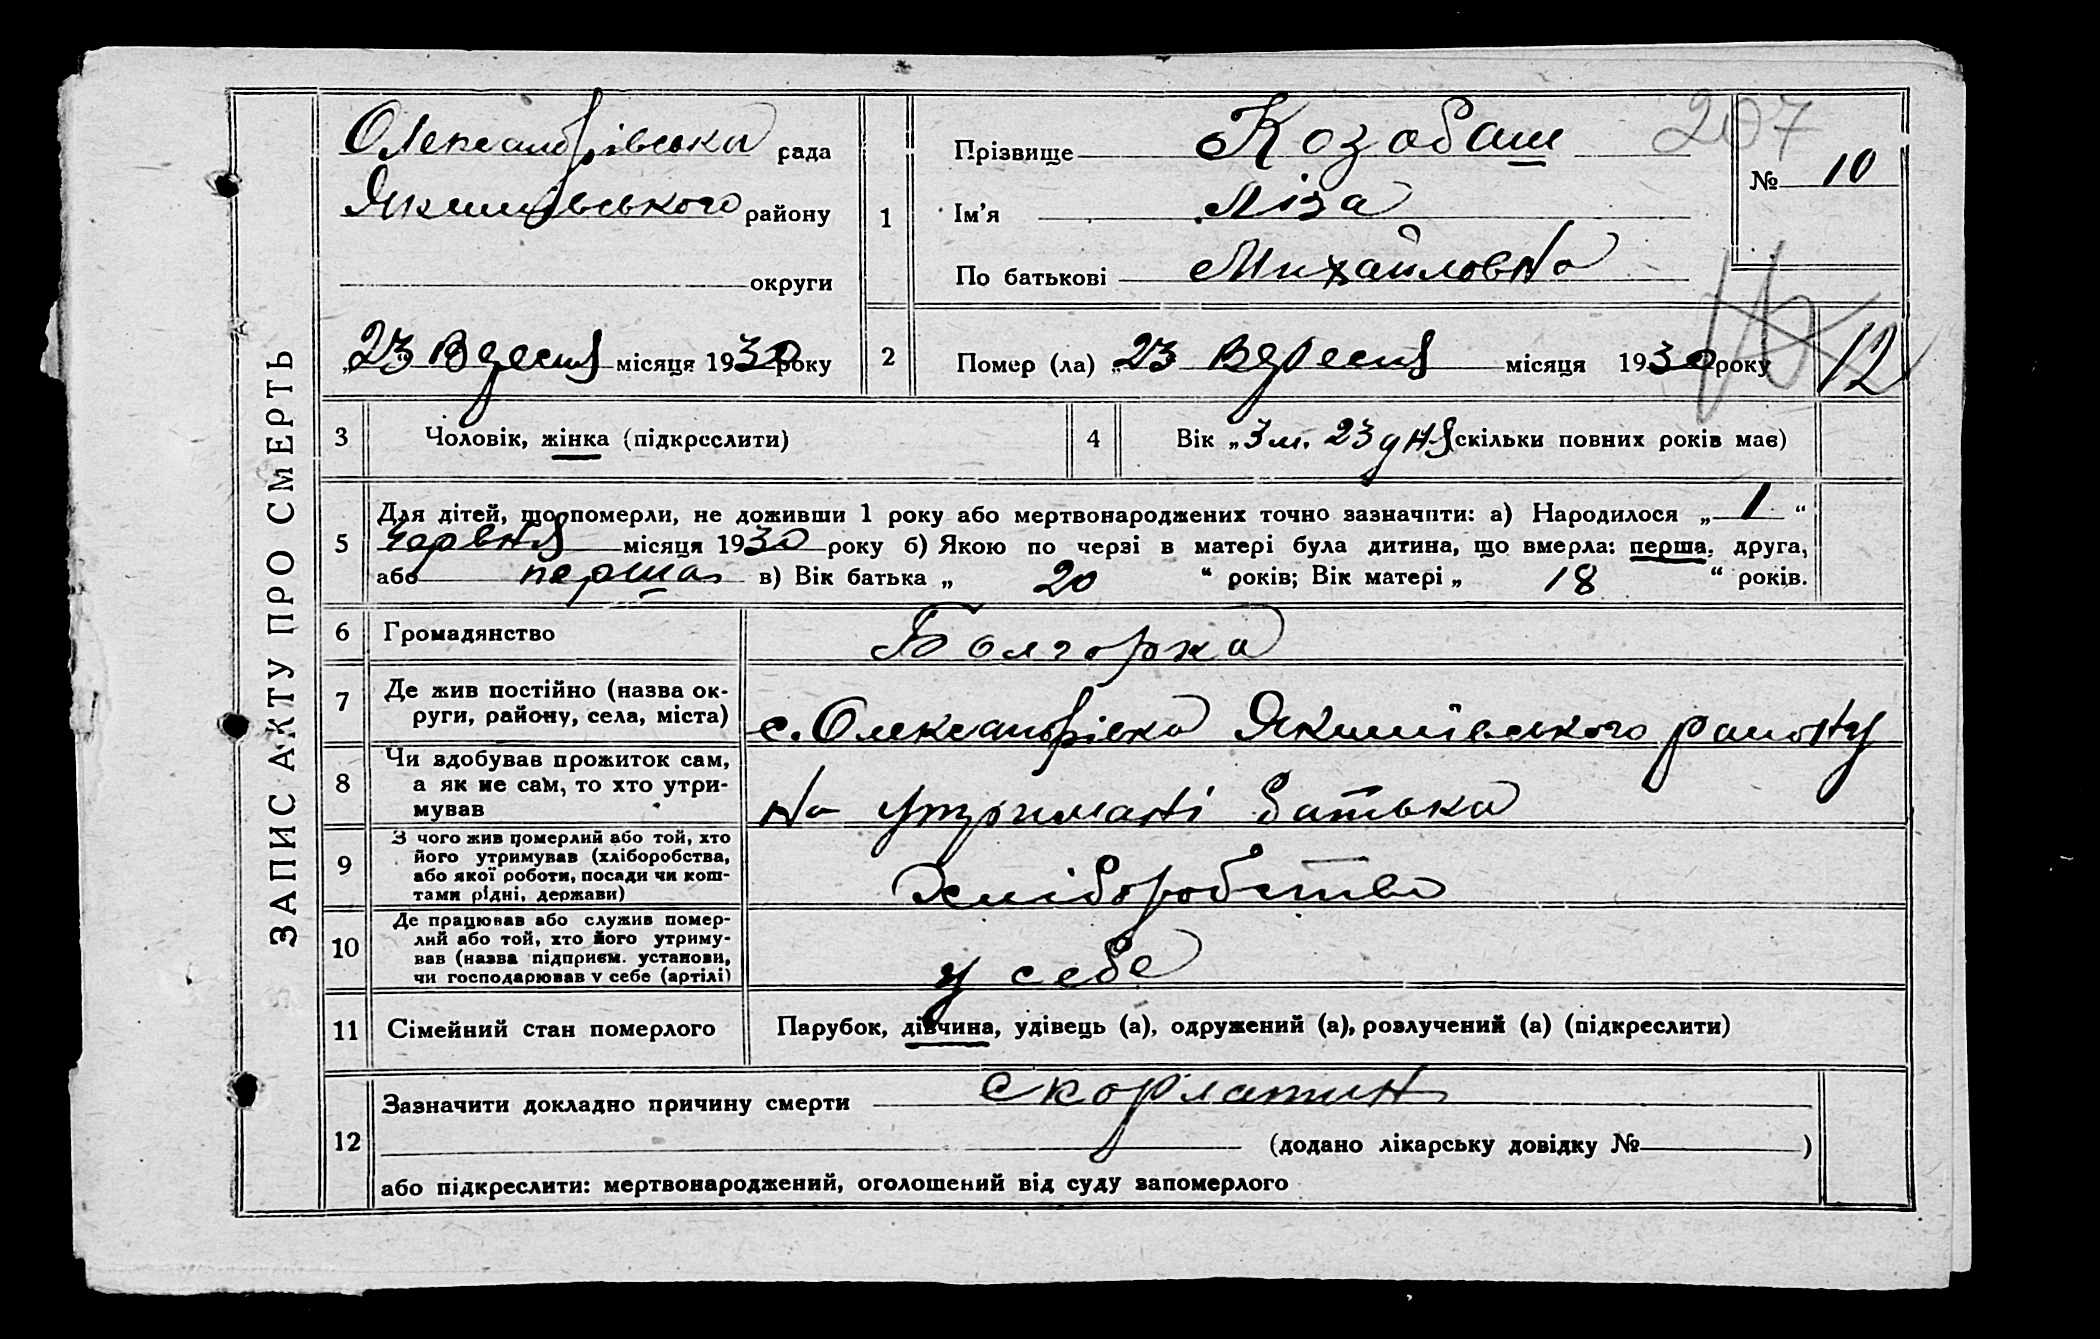 ЗАПИС АКТУ ПРО СМЕРТЬ
Олександрівська рада
Якимівського району
округи
„23 Вересня місяця 1930 року
1
Прізвище Козобаш
Ім’я Ліза
По батькові Михайловна
207
№ 10
2
Помер (ла) „23 Вересня місяця 1930 року
12
3
Чоловік, жінка (підкреслити)
4
Вік „3 м. 23 дня (скільки повних років має)
5
Для дітей, що померли, не доживши 1 року або мертвонароджених точно зазначити: а) Народилося „1“
червня місяця 1930 року б) Якою по черзі в матері була дитина, що вмерла: перша, друга,
або перша в) Вік батька „ 20 “ років; Вік матері „ 18 “ років.
6
Громадянство
Болгорка
7
Де жив постійно (назва ок-
руги, району, села, міста)
с. Олександрівка Якимівського району
8
Чи здобував прожиток сам,
а як не сам, то хто утри-
мував
на утримані батька
9
З чого жив померлий або той, хто
його утримував (хліборобства,
або якої роботи, посади чи кош-
тами рідні, держави)
Хліборобство
10
Де працював або служив помер-
лий або той, хто його утриму-
вав (назва підприєм. установи,
чи господарював у себе (артілі)
у себе
11
Сімейний стан померлого
Парубок, дівчина, удівець (а), одружений (а), розлучений (а) (підкреслити)
12
Зазначити докладно причину смерти скорлатин
(додано лікарську довідку № )
або підкреслити: мертвонароджений, оголошений від суду запомерлого